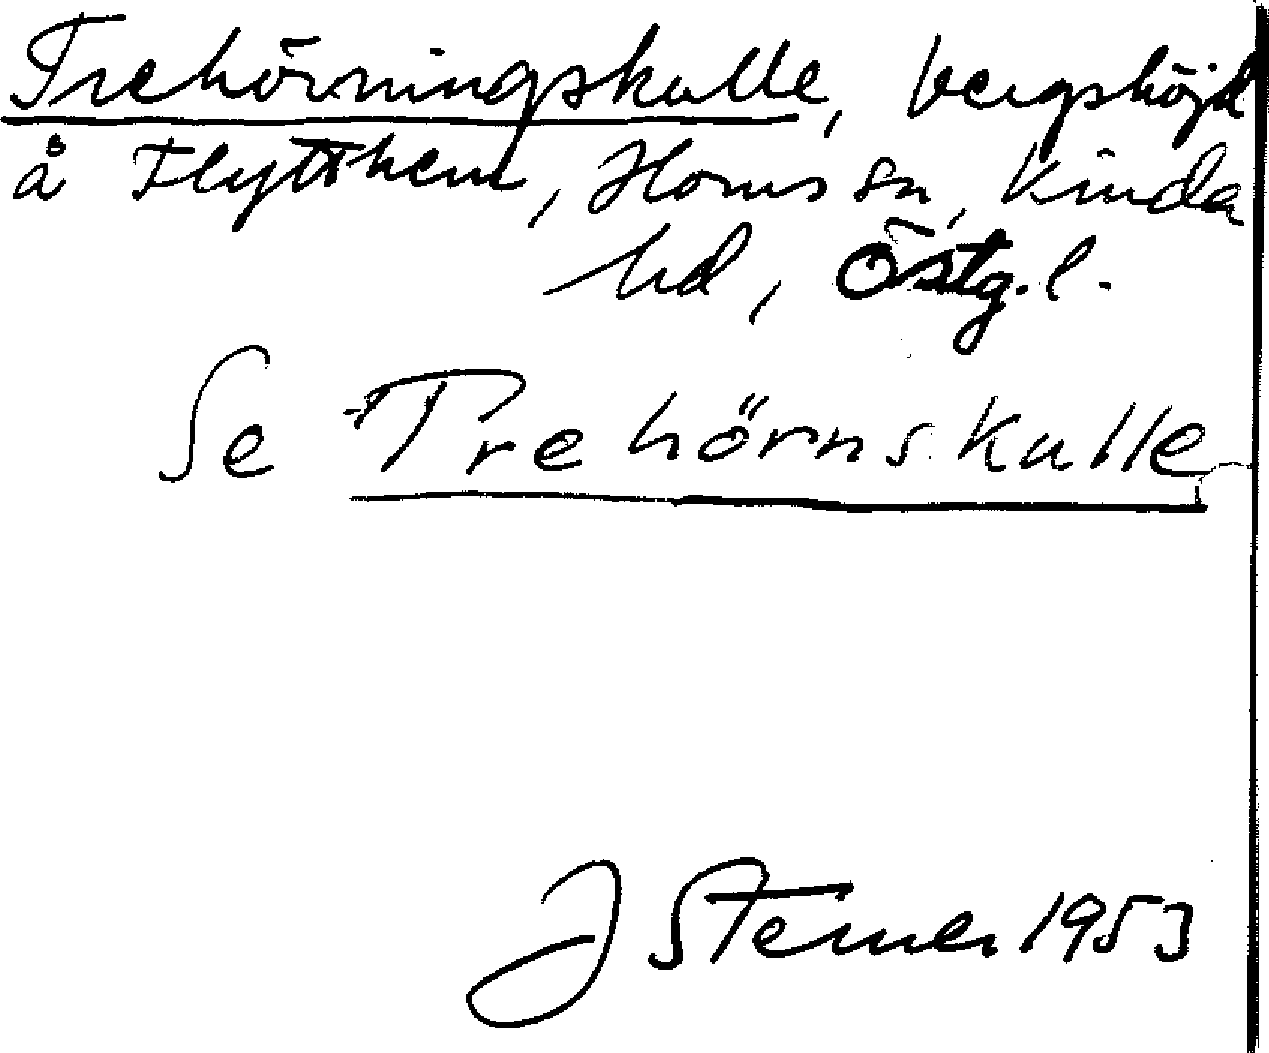 Trehörningskulle, bergshöjd
å Flytthem, Horns sn, Kinda
hd, Östg. l.
Se Trehörnskulle
J Sterner 1953